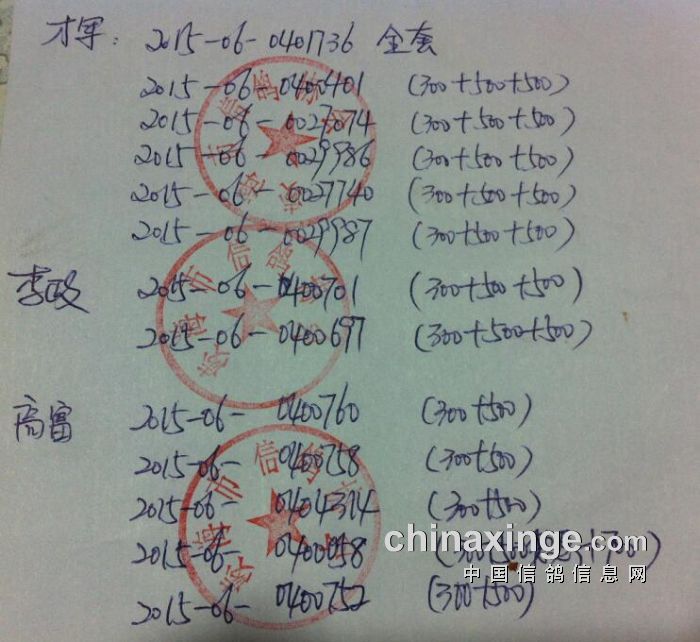 才军: 2015-06-0401736 全套
2015-06-0400401 (300+500+500)
2015-06-0027074 (300+500+500)
2015-06-0029986 (300+500+500)
2015-06-0027740 (300+500+500)
2015-06-0029987 (300+500+500)
李政 2015-06-0400701 (300+500+500)
2015-06-0400697 (300+500+500)
高富 2015-06-0400760 (300+500)
2015-06-0400758 (300+500)
2015-06-0404314 (300+500)
2015-06-0400058
chinaxinge.com
中国信鸽信息网
2015-06-0400752 (300+500)